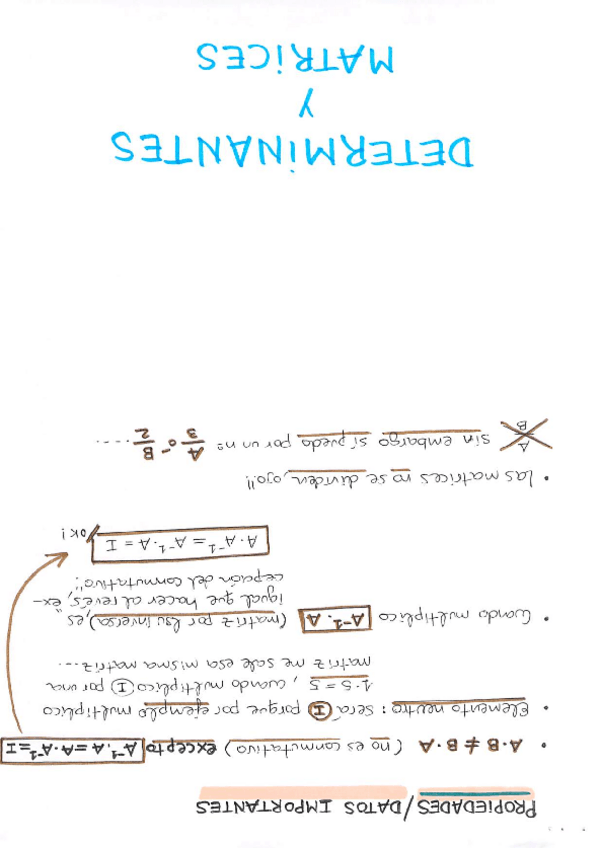 PROPIEDADES/DATOS IMPORTANTES
• A·B ≠ B·A (no es conmutativo) excepto A⁻¹·A = A·A⁻¹ = I
• Elemento neutro: será I porque por ejemplo multiplico
1·5 = 5, cuando multiplico I por una
matriz me sale esa misma matriz....
• Cuando multiplico A⁻¹·A (matriz por su inversa), es
igual que hacer al revés, "ex-
cepción del conmutativo".
A·A⁻¹ = A⁻¹·A = I
¡OK!
• Las matrices no se dividen, ojo!!
A/B sin embargo sí puedo por un nº A/3 o -B/2 ....
DETERMINANTES
Y
MATRICES